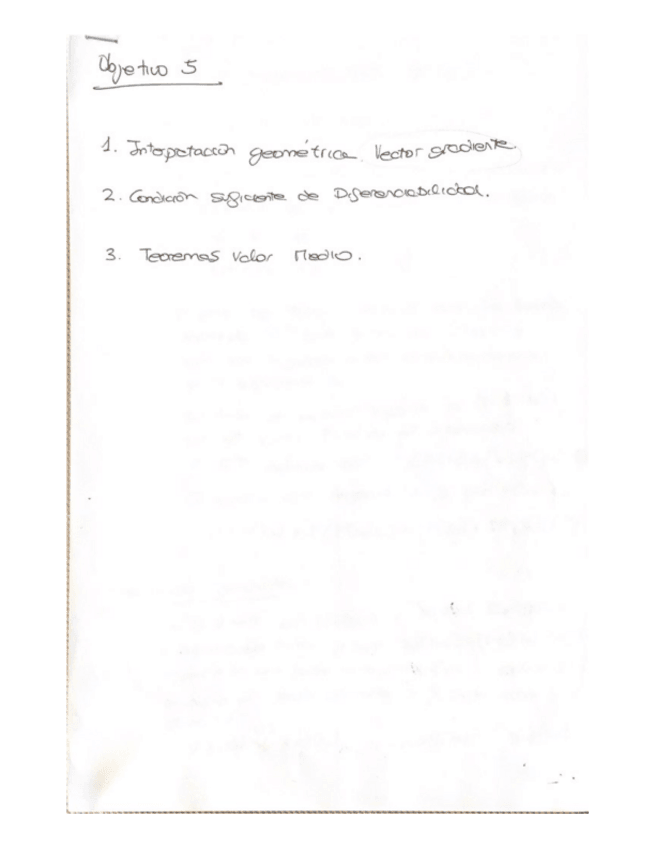 Objetivo 5
1. Intepetación geométrica. Vector gradiente.
2. Condición suficiente de Diferenciabilidad.
3. Teoremas Valor Medio.